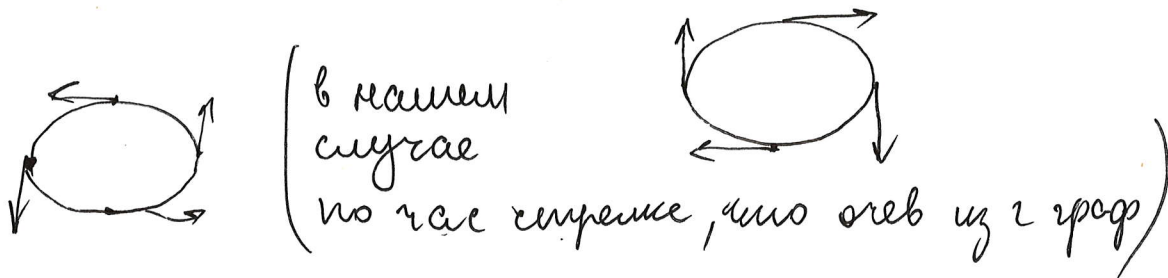 в нашем
случае
по час стрелке, что очев из 2 граф